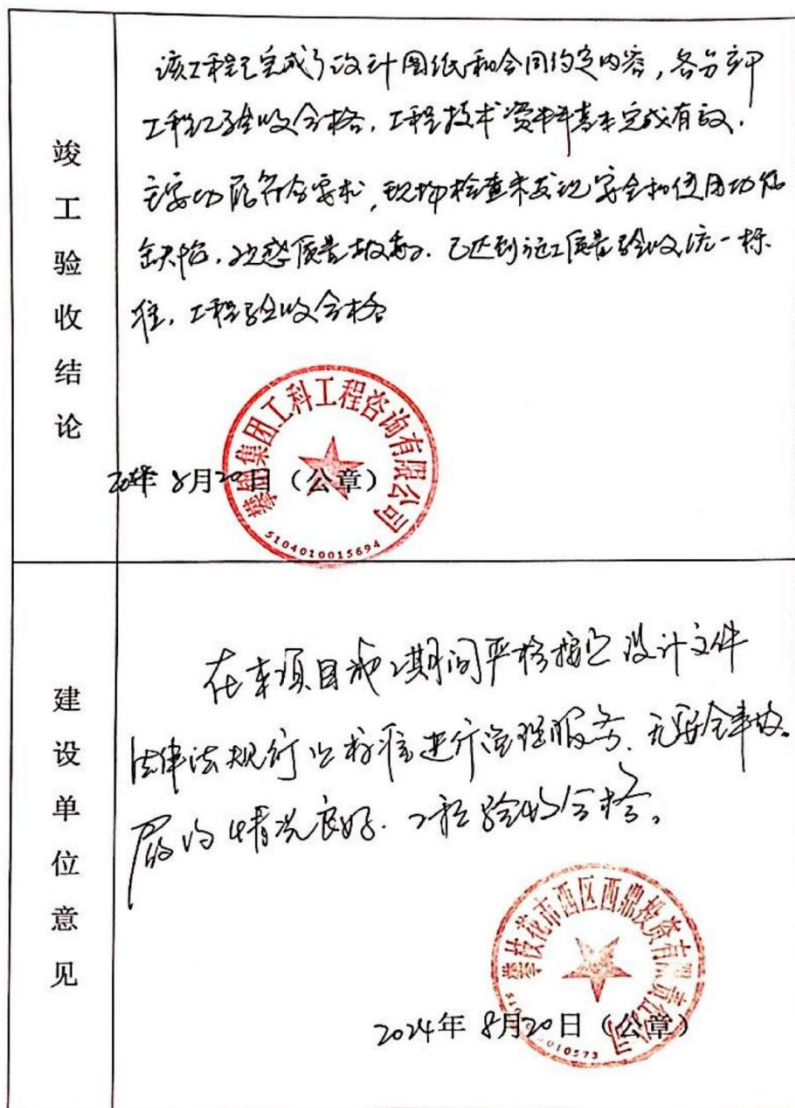 竣工验收结论
该工程已完成了设计图纸和合同约定内容，各分部
工程已验收合格，工程技术资料基本完成有效，
主要功能符合要求，现场检查未发现安全和使用功能
缺陷，质量，已达到施工质量验收统一标
准，工程验收合格
攀钢集团工科工程咨询有限公司
5104010015694
8月20日（公章）
建设单位意见
在本项目施工期间严格按照设计文件
法律法规行业标准进行管理服务，无安全事故。
履约情况良好，工程验收合格。
攀枝花市西区西鼎投资有限责任公司
2024年 8月20日（公章）